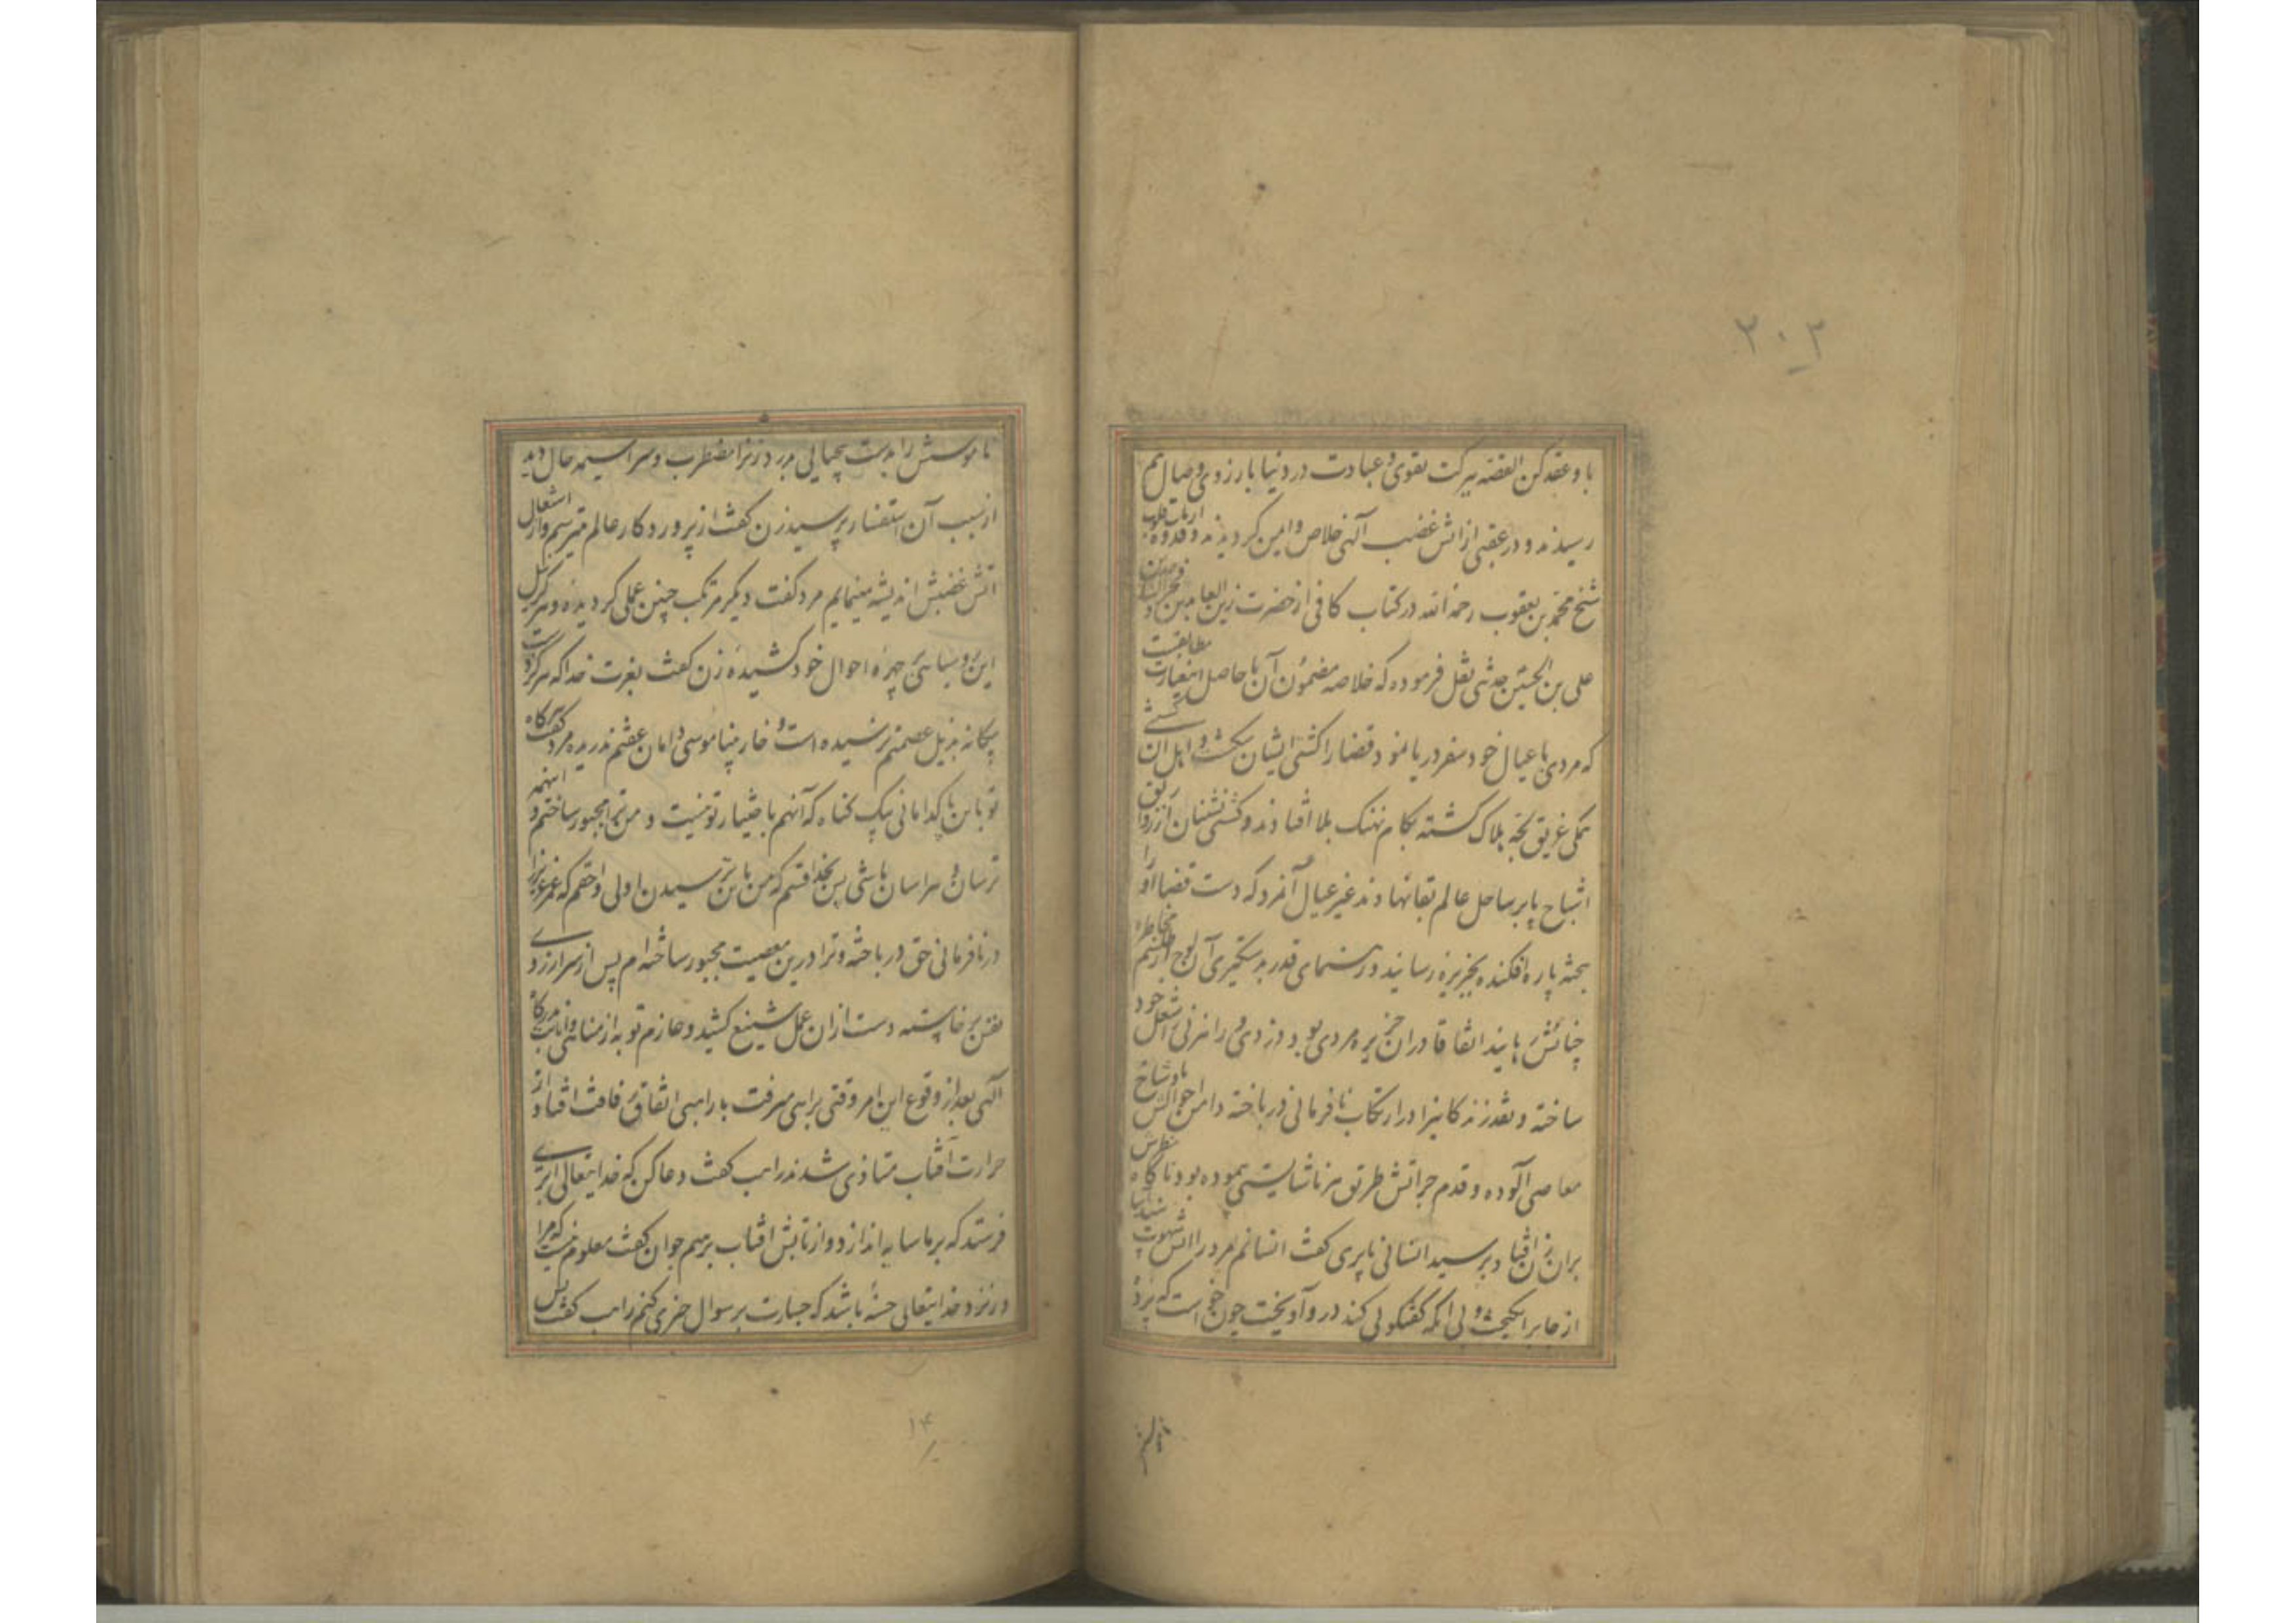 ۲۰۳
باو عقد کن القصه ببرکت تقوی و عبادت در دنیا بارزوی وصال هم
رسیدند و در عقبی از اتش غضب آلهی خلاص و امین کردیدند و قدوه ارباب
شیخ محمد بن یعقوب رحمة الله در کتاب کافی از حضرت زین العابدین و
علی بن الحسین حدیثی نقل فرموده که خلاصه مضمون آن با حاصل اینعبارت مطابقست
که مردی با عیال خود سفر دریا نمود قضا را کشتی ایشان بشکست و اهل ان کشتی
یکی غریق لجه هلاک کشته بکام نهنک بلا افتادند و کشتی نشینان ارزوا
اشباح پا بر ساحل عالم بقا نهادند غیر عیال آنمرد که دست قضا او را
بتخته پاره افکنده بجزیره رسانید و رهنمای قدر بدستکیری آن لوح از
جنانش رهانید اتفاقا در ان جزیره مردی بود دزدی و راهزنی شغل خود
ساخته و نقد زندکانیرا در ارتکاب نافرمانی در باخته دامن احوالش
معاصی آلوده و قدم جراتش طریق هر ناشایستی پیموده بود ناکاه نظرش
بران زن افتاد پرسید انسانی یا پری کفت انسانم مرد را اتش شهوت
از جا برانکیخت و بی انکه کفتکوئی کند در و آویخت چون خواست که پرده
ناموسش را بدست بیحیائی بدرد زنرا مضطرب و سراسیمه حال دید
از سبب آن استفسار پرسید زن کفت از پروردکار عالم میترسم و از اشتعال
اتش غضبش اندیشه مینمایم مرد کفت دیکر مرتکب چنین عملی کردیده و هرکز
این روسیاهی بر چهره احوال خود کشیده زن کفت بعزت خدا که هرکز دست
بیکانه بذیل عصمتم نرسیده است و خار بیناموسی دامان عفتم ندریده مرد کفت هرکاه
تو با این پاکدامانی بیک کناه که آنهم باختیار تو نیست و من ترا مجبور ساختم اینهمه
ترسان و هراسان باشی پس بخدا قسم که من باین ترسیدن اولی و احقم که عمر عزیز را
در نافرمانی حق در باخته و ترا درین معصیت مجبور ساخته ام پس از سر ارزوی
نفس برخاسته دست از ان عمل شنیع کشید و عازم توبه از مناهی و انابت بدرکاه
آلهی بعد از وقوع این امر وقتی براهی میرفت با راهبی اتفاق رفاقت افتاد از
حرارت آفتاب متاذی شدند راهب کفت دعا کن که خدایتعالی ابری
فرستد که بر ما سایه اندازد و از تابش افتاب برهیم جوان کفت معلوم نیست که مرا
در نزد خدایتعالی حسنه باشد که جسارت بر سوال چیزی کنم راهب کفت پس
۱۴